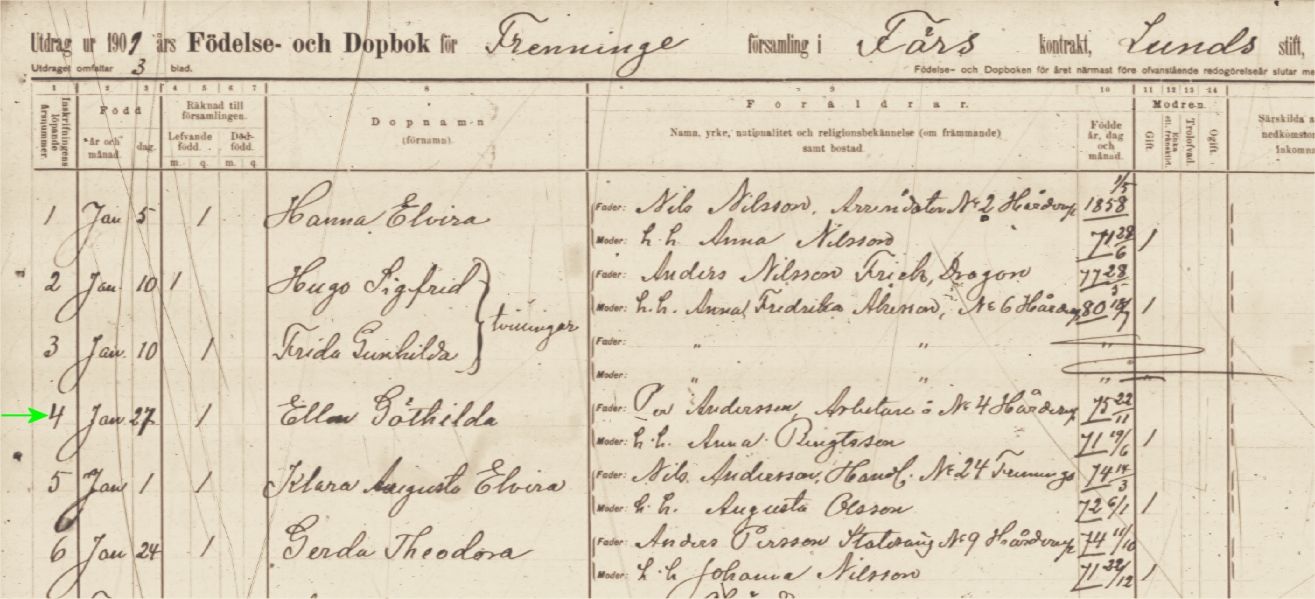 Utdrag ur 1909 års Födelse- och Dopbok för Frenninge församling i Färs kontrakt, Lunds stift,
Utdraget omfattar 3 blad. Födelse- och Dopboken för året närmast före ofvanstående redogörelseår slutar
1 2 3 4 5 6 7 8 9 10 11 12 13 14
Inskrifningens löpande årsnummer. Född Räknad till församlingen. Dopnamn Föräldrar. Födde år, dag och månad. Modren.
år och månad. dag. Lefvande född. Död-född. (förnamn). Namn, yrke, nationalitet och religionsbekännelse (om främmande) samt bostad. Gift. Trolofvad. Ogift. Särskilda
m. q. m. q.
1 Jan 5 1 Hanna Elvira Fader: Nils Nilsson, Arrendator No 2 Hårderup 1858 1/5
Moder: h. h. Anna Nilsson 71 28/6 1
2 Jan. 10 1 Hugo Sigfrid Fader: Anders Nilsson Frick, Dragon 77 28/5
tvillingar
Moder: h. h. Anna Fredrika Åkesson, No 6 Hårderup 80 1
3 Jan. 10 1 Frida Gunhilda Fader: " " "
Moder: " " "
4 Jan 27 1 Ellen Göthilda Fader: Per Andersson, Arbetare å No 4 Hårderup 75 22/11
Moder: h. h. Anna Bengtsson 71 19/6 1
5 Jan 1 1 Klara Augusta Elvira Fader: Nils Andersson, Handl. No 24 Frenninge 74 14/3
Moder: h. h. Augusta Olsson 72 6/1 1
6 Jan 24 1 Gerda Theodora Fader: Anders Persson Statdräng No 9 Hårderup 74 11/10
Moder: h. h Johanna Nilsson 71 22/12 1